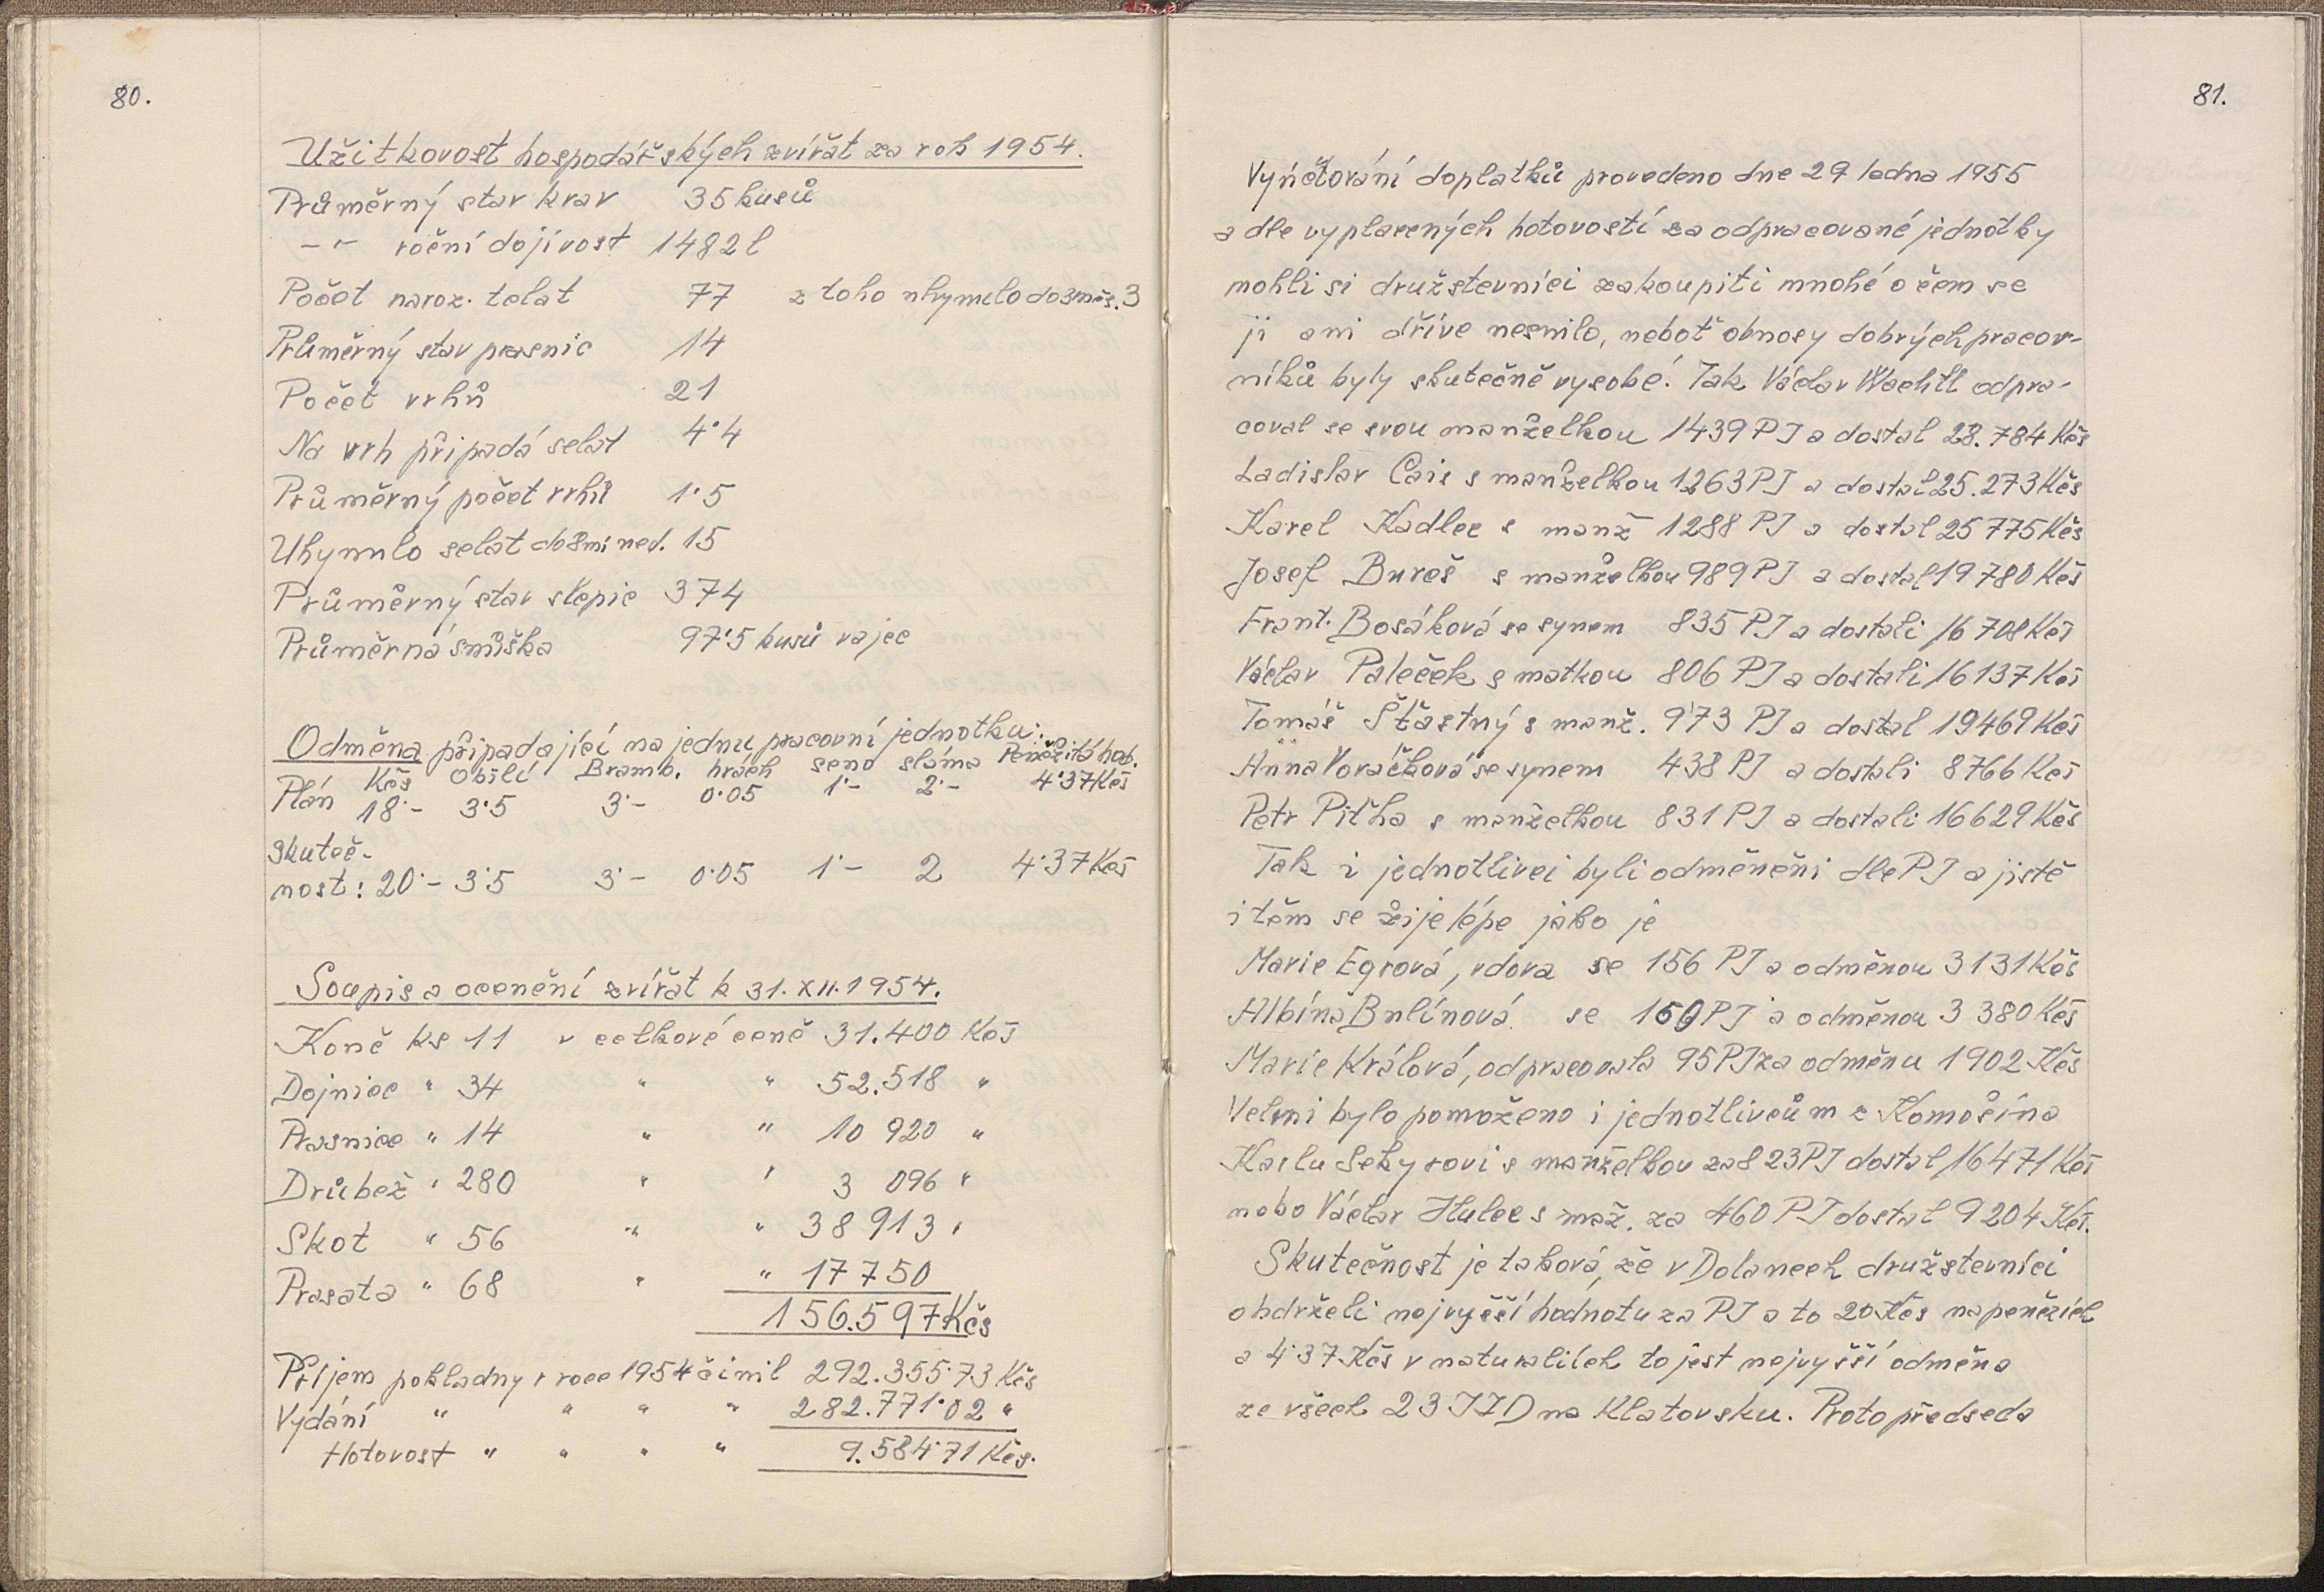 80.
Užitkovost hospodářských zvířat za rok 1954.
Průměrný stav krav 35 kusů
-"- roční dojivost 1482 l
Počet naroz. telat 77 z toho uhynulo do 3 měs. 3
Průměrný stav prasnic 14
Počet vrhů 21
Na vrh připadá selat 4·4
Průměrný počet vrhů 1·5
Uhynulo selat do 8mi ned. 15
Průměrný stav slepic 374
Průměrná snůška 97·5 kusů vajec
Odměna připadající na jednu pracovní jednotku:
Kčs Obilí Bramb. hrách seno sláma Peněžitá hod.
Plán 18·- 3·5 3·- 0·05 1·- 2·- 4·37 Kčs
Skuteč-
nost: 20·- 3·5 3·- 0·05 1·- 2 4·37 Kčs
Soupis a ocenění zvířat k 31. XII. 1954.
Koně ks 11 v celkové ceně 31.400 Kčs
Dojnice " 34 " " 52.518 "
Prasnice " 14 " " 10 920 "
Drůbež " 280 " " 3 096 "
Skot " 56 " " 38 913 "
Prasata " 68 " " 17 750
156.597 Kčs
Příjem pokladny v roce 1954 činil 292.355·73 Kčs
Vydání " " " " 282.771·02 "
Hotovost " " " " 9.584·71 Kčs.
81.
Vyúčtování doplatků provedeno dne 29 ledna 1955
a dle vyplacených hotovostí za odpracované jednotky
mohli si družstevníci zakoupiti mnohé o čem se
ji ani dříve nesnilo, neboť obnosy dobrých pracov-
níků byly skutečně vysoké. Tak Václav Wachtl odpra-
coval se svou manželkou 1439 PJ a dostal 28.784 Kčs
Ladislav Cais s manželkou 1263 PJ a dostal 25.273 Kčs
Karel Kadlec s manž 1288 PJ a dostal 25 775 Kčs
Josef Bureš s manželkou 989 PJ a dostal 19 780 Kčs
Frant. Bosáková se synem 835 PJ a dostali 16 708 Kčs
Václav Paleček s matkou 806 PJ a dostali 16 137 Kčs
Tomáš Šťastný s manž. 973 PJ a dostal 19 469 Kčs
Anna Voráčková se synem 438 PJ a dostali 8766 Kčs
Petr Piťha s manželkou 831 PJ a dostali 16 629 Kčs
Tak i jednotlivci byli odměněni dle PJ a jistě
i těm se žije lépe jako je
Marie Egrová, vdova se 156 PJ a odměnou 3131 Kčs
Albína Bulínová se PJ a odměnou 3 380 Kčs
Marie Králová, odpracovala 95 PJ za odměnu 1902 Kčs
Velmi bylo pomoženo i jednotlivcům z Komošína
Karlu Sekyrovi s manželkou za 823 PJ dostal 16 471 Kčs
nebo Václav Hulec s maž. za 460 PJ dostal 9 204 Kčs.
Skutečnost je taková, že v Dolanech družstevníci
obdrželi nejvyšší hodnotu za PJ a to 20 Kčs na penězích
a 4·37 Kčs v naturaliích to jest nejvyšší odměna
ze všech 23 JZD na Klatovsku. Proto předseda